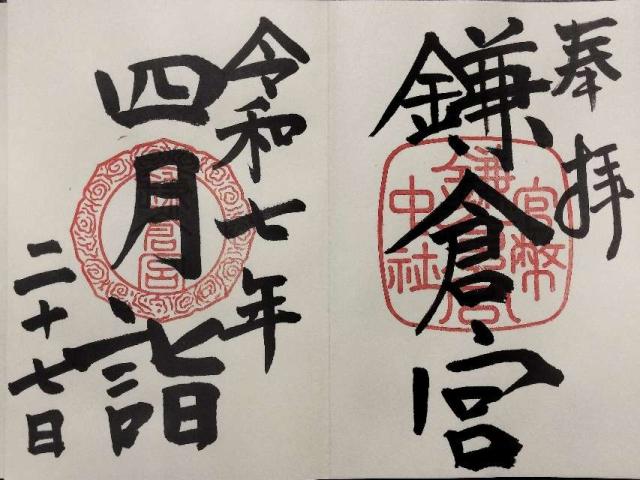 奉拝
鎌倉宮
官幣
鎌倉宮
中社
令和七年
四月詣
鎌倉宮
二十七日